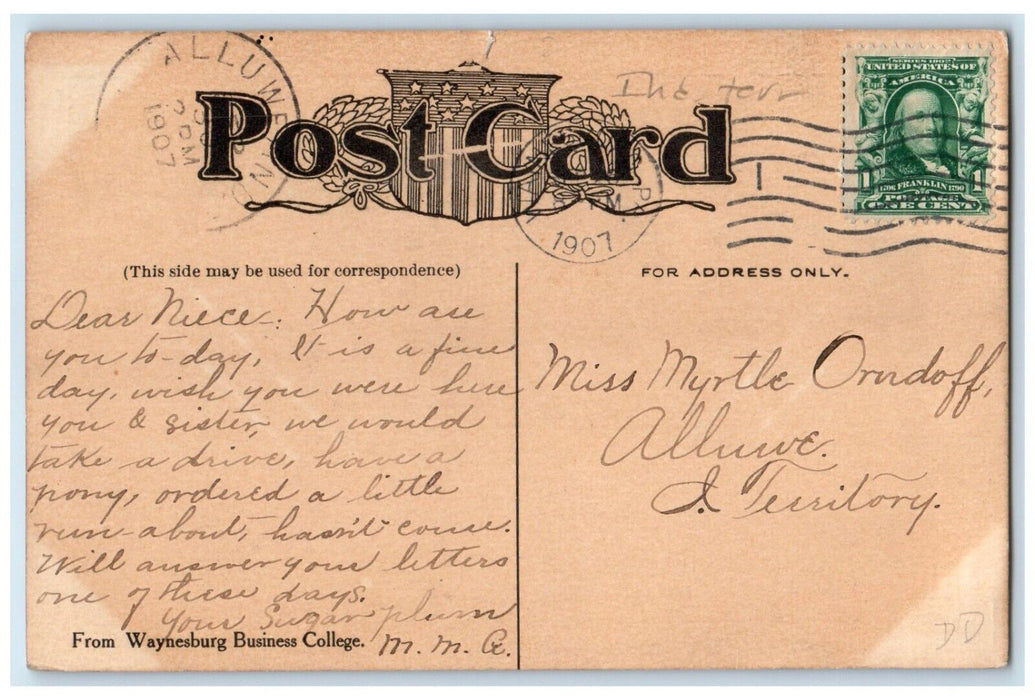 ALLUWE IN
2 PM
1907
Post Card
Ind terr
1907
SERIES 1902
UNITED STATES OF
AMERICA
1 1706 FRANKLIN 1790 1
POSTAGE
ONE CENT
(This side may be used for correspondence)
Dear Niece-: How are
you to-day, It is a fine
day, wish you were here
you & sister, we would
take a drive, have a
pony, ordered a little
run-about, hasn't come.
Will answer your letters
one of these days.
Your Sugar plum
M. M. G.
From Waynesburg Business College.
FOR ADDRESS ONLY.
Miss Myrtle Orndoff,
Alluwe.
I. Territory.
DD